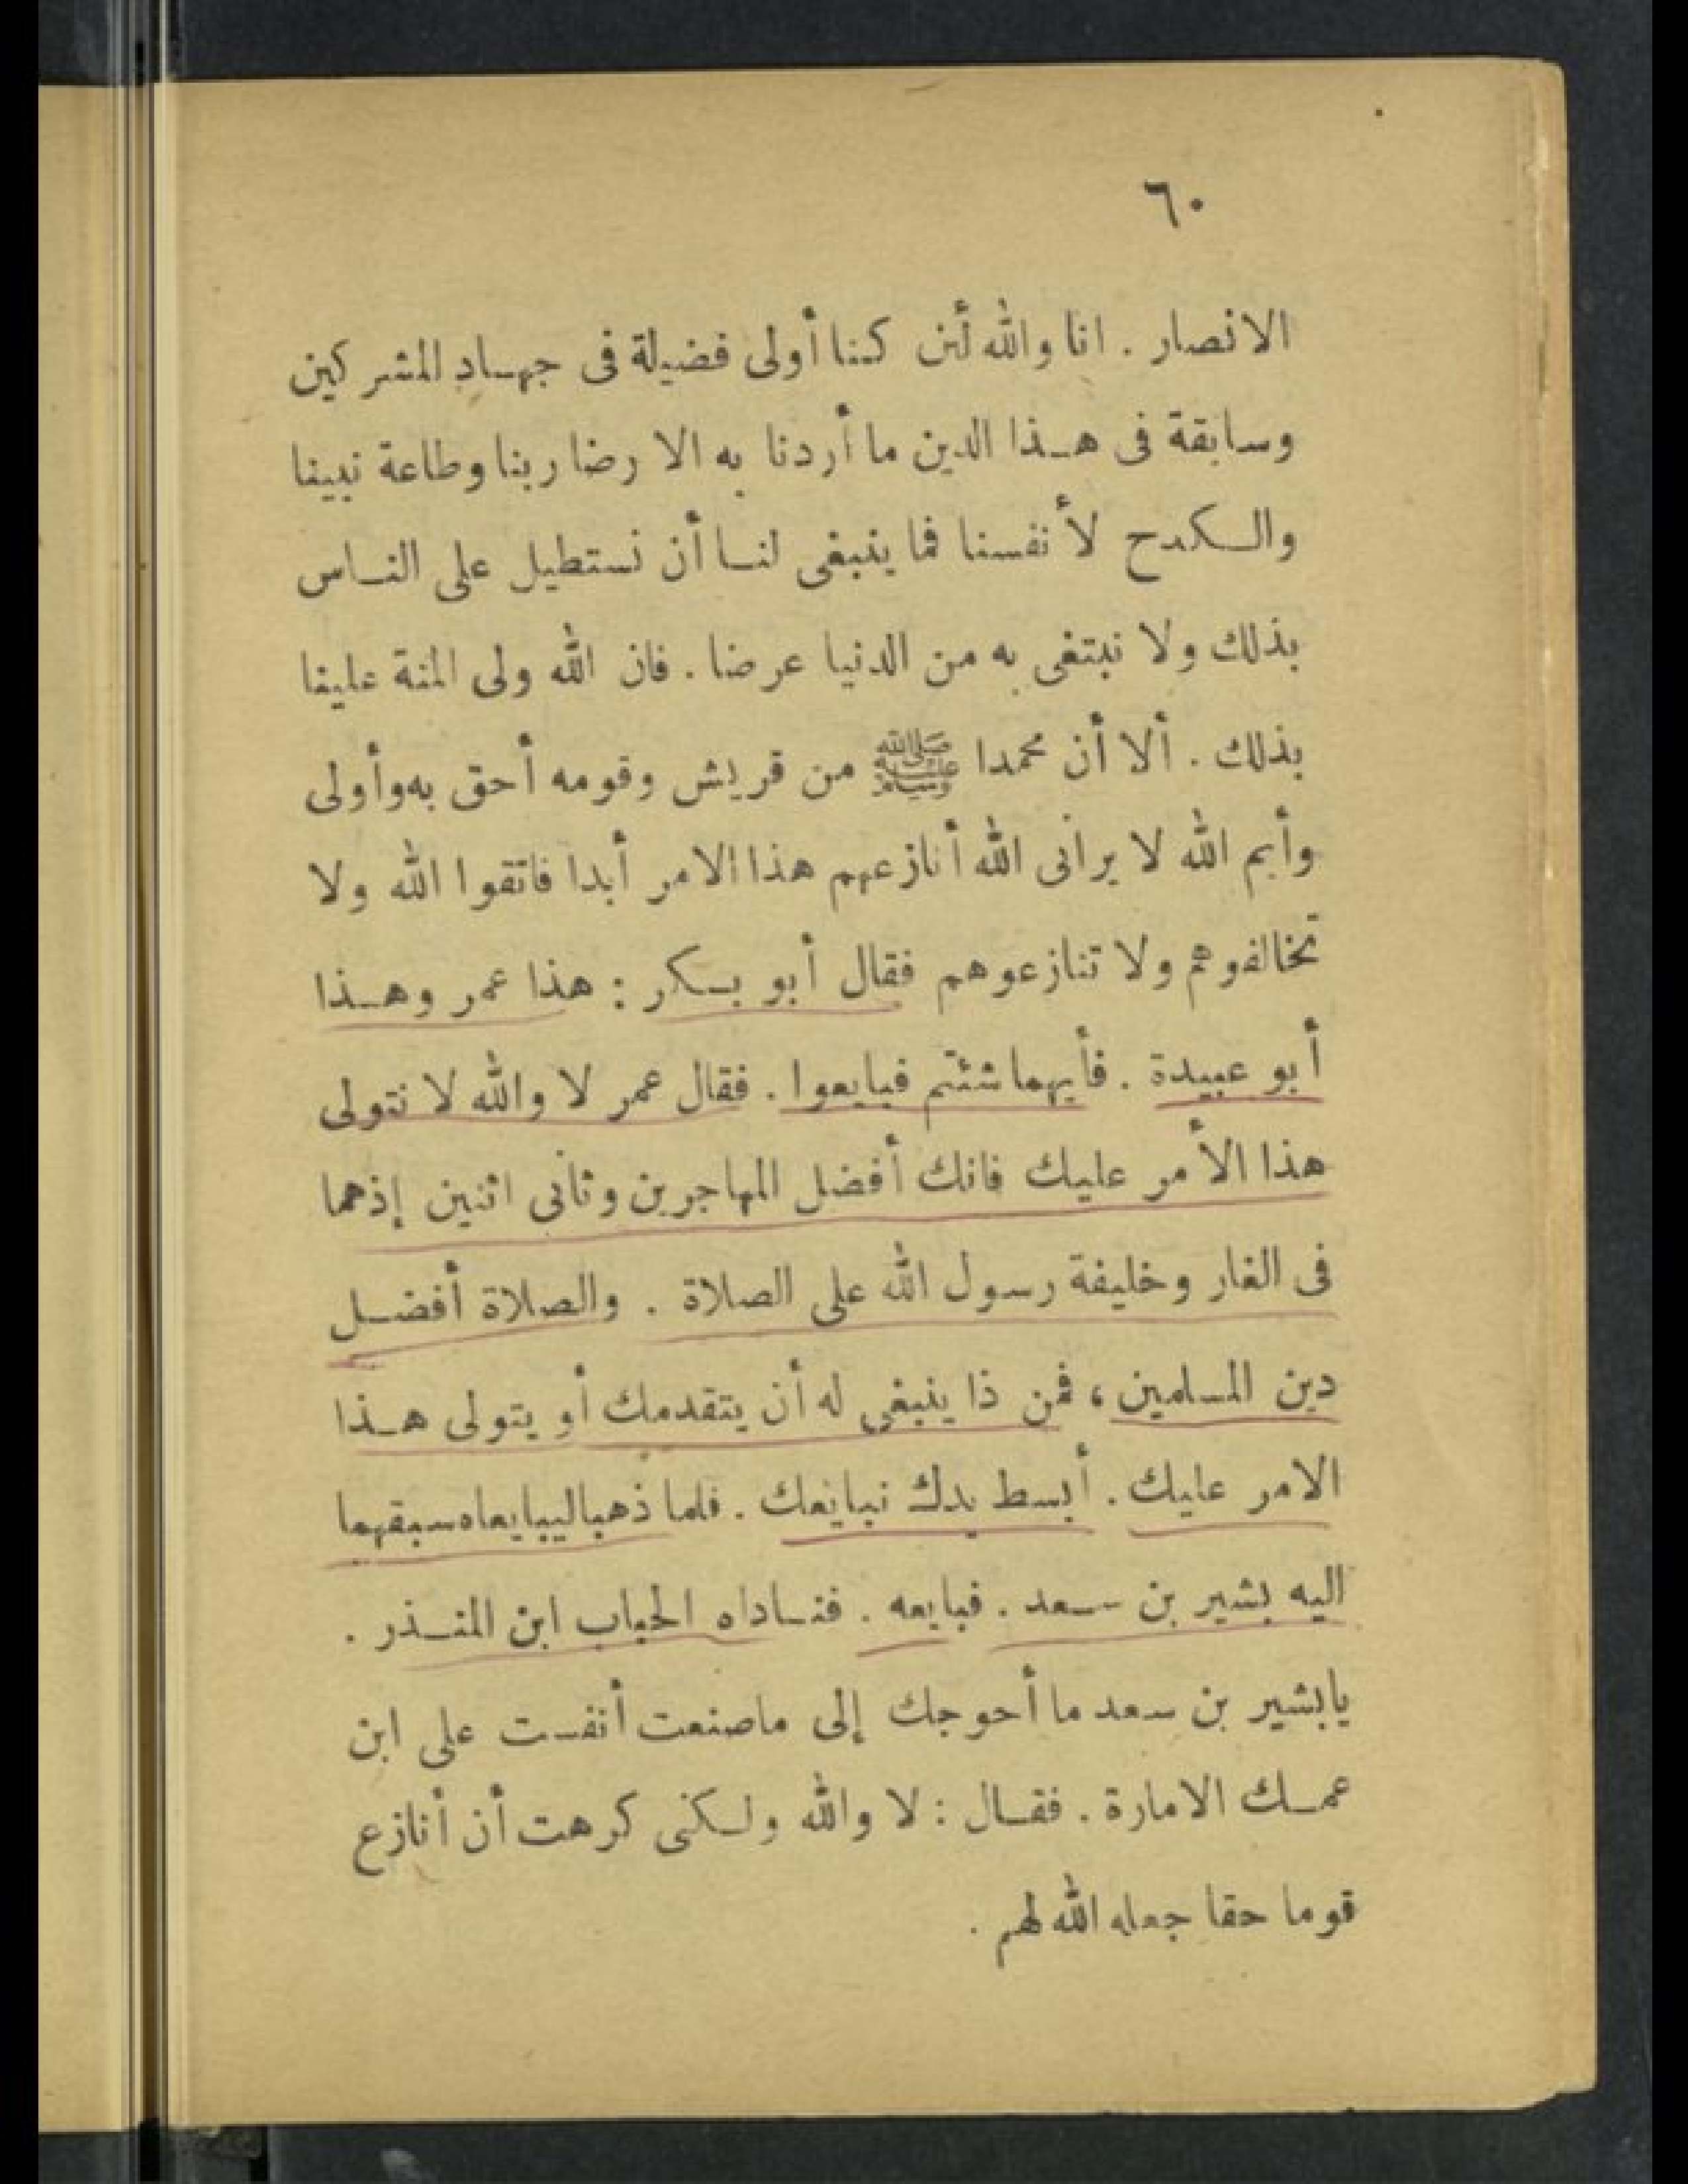 ٦٠
الانصار . انا والله لئن كنا أولى فضيلة فى جهاد المشركين
وسابقة فى هذا الدين ما أردنا به الا رضا ربنا وطاعة نبينا
والكدح لأنفسنا فما ينبغى لنا أن نستطيل على الناس
بذلك ولا نبتغى به من الدنيا عرضا . فان الله ولى المنة علينا
بذلك . ألا أن محمدا ﷺ من قريش وقومه أحق به وأولى
وأيم الله لا يرانى الله أنازعهم هذا الامر أبدا فاتقوا الله ولا
تخالفوهم ولا تنازعوهم فقال أبو بكر : هذا عمر وهذا
أبو عبيدة . فأيهما شئتم فبايعوا . فقال عمر لا والله لا نتولى
هذا الأمر عليك فانك أفضل المهاجرين وثانى اثنين إذهما
فى الغار وخليفة رسول الله على الصلاة . والصلاة أفضل
دين المسلمين ، فمن ذا ينبغى له أن يتقدمك أو يتولى هذا
الامر عليك . أبسط يدك نبايعك . فلما ذهبا ليبايعاه سبقهما
اليه بشير بن سعد . فبايعه . فناداه الحباب ابن المنذر .
يابشير بن سعد ما أحوجك إلى ماصنعت أنفست على ابن
عمك الامارة . فقال : لا والله ولكنى كرهت أن أنازع
قوما حقا جعله الله لهم .